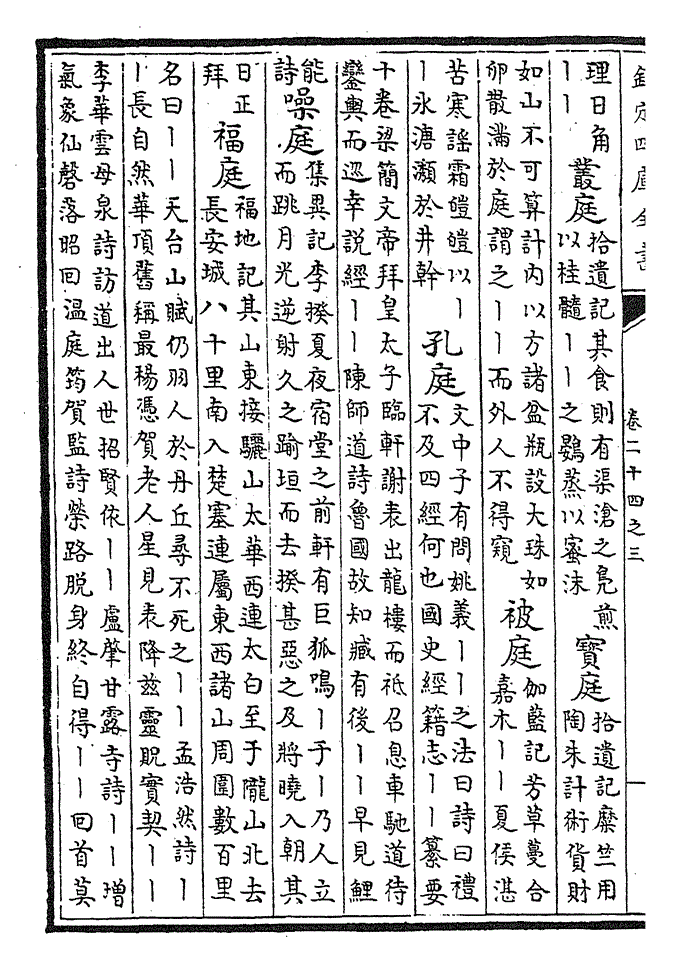 欽定四庫全書
卷二十四之三
理日角
丨丨
叢庭
拾遺記其食則有渠滄之鳧煎
以桂髓丨丨之鷃蒸以蜜沫
寶庭
拾遺記糜竺用
陶朱計術貨財
如山不可算計内以方諸盆瓶設大珠如
卵散滿於庭謂之丨丨而外人不得窺
被庭
伽藍記芳草蔓合
嘉木丨丨夏侯湛
苦寒謠霜皚皚以丨
丨永溏瀨於井幹
孔庭
文中子有問姚義丨丨之法曰詩曰禮
不及四經何也國史經籍志丨丨纂要
十卷梁簡文帝拜皇太子臨軒謝表出龍樓而祗召息車馳道待
鑾輿而巡幸說經丨丨陳師道詩魯國故知臧有後丨丨早見鯉
能
詩
噪庭
集異記李揆夏夜宿堂之前軒有巨狐鳴丨于丨乃人立
而跳月光逆射久之踰垣而去揆甚惡之及將曉入朝其
日正
拜
福庭
福地記其山東接驪山太華西連太白至于隴山北去
長安城八十里南入楚塞連屬東西諸山周圍數百里
名曰丨丨天台山賦仍羽人於丹丘尋不死之丨丨孟浩然詩丨
丨長自然華頂舊稱最楊憑賀老人星見表降兹靈貺實契丨丨
李華雲母泉詩訪道出人世招賢依丨丨盧肇甘露寺詩丨丨增
氣象仙磬落昭回温庭筠賀監詩榮路脫身終自得丨丨回首莫